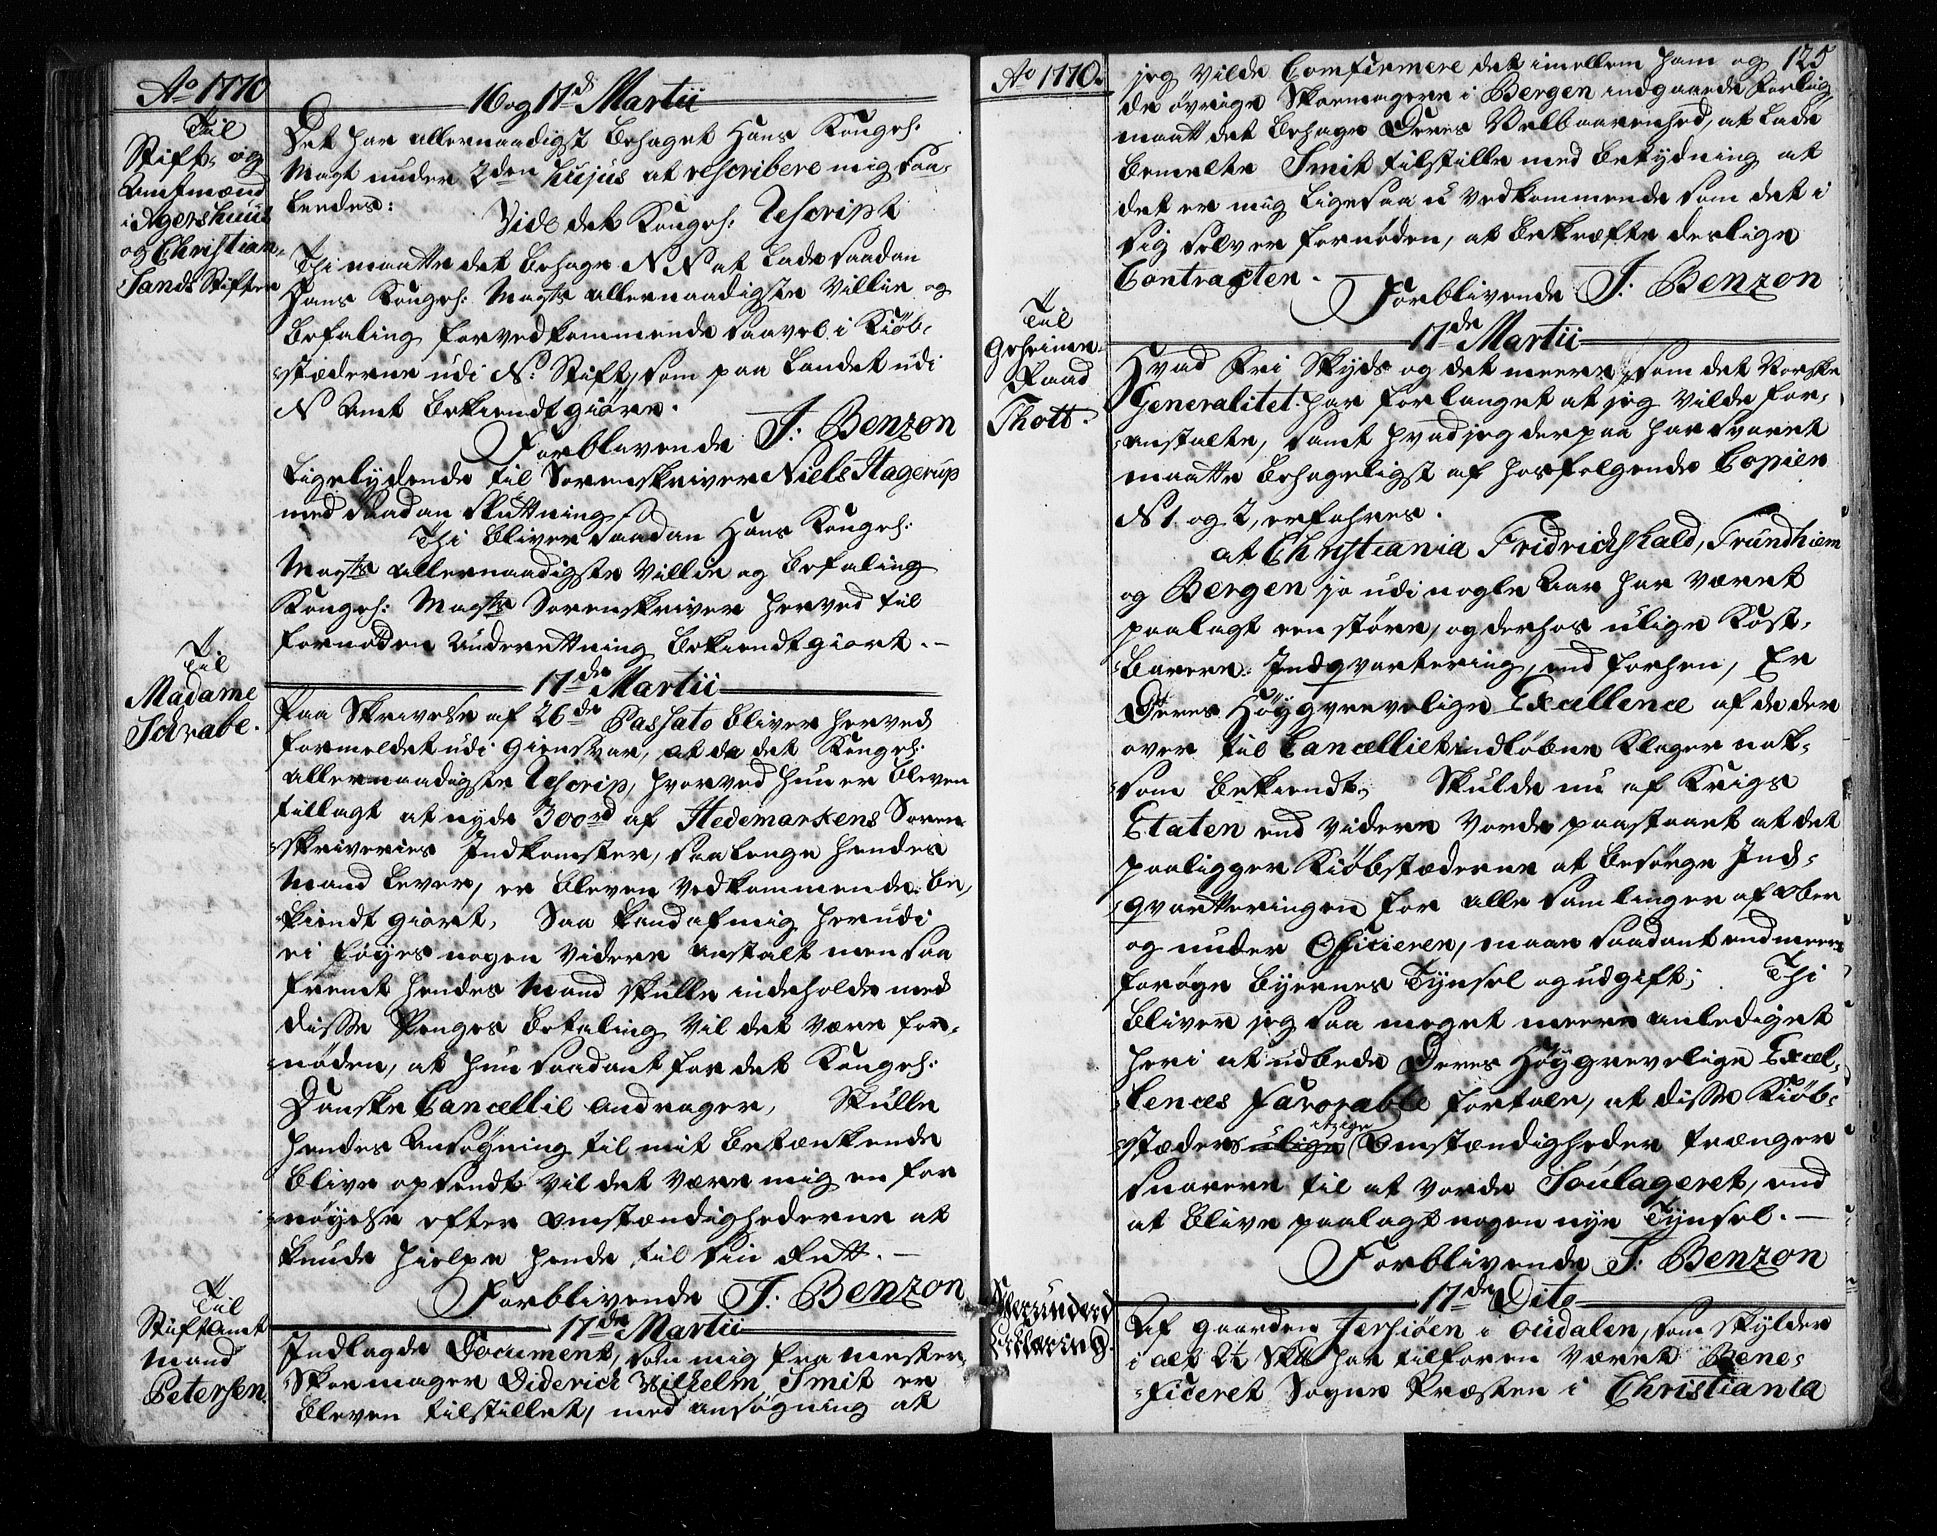 Ao 1770
16 og 17de Martii
Til
Stift- og
Amtmænd
i Agershuus
og Christian-
Sands Stifter
Det har allernaadigst behaget Hans Kongel:
Mayt under 2den hujus at rescribere mig saa-
ledes:
Vide det Kongel: Rescript
Thi maatte det behage NN at lade saadan
Hans Kongel: Mayts allernaadigste Villie og
Befaling for vedkommende saavel i Kiøb-
stæderne udi N: Stift, som paa Landet udi
N Amt bekiendtgiøre.
Forblivende J: Benzon
Ligelydende til Sorenskriver Niels Hagerup
med saadan Slutning
Thi bliver saadan Hans Kongel:
Mayts allernaadigste Villie og Befaling
Kongel: Mayts Sorenskriver herved til
fornøden Underrettning bekiendtgiort. –
17de Martii
Til
Madame
Schrabe.
Paa Skrivelse af 26de Passato bliver herved
formeldet udi Giensvar, at da det Kongel:
allernaadigste Rescrip, hvorved hun er bleven
tillagt at nyde 300rd af Hedemarkens Soren-
skriveries Indkomster, saalenge hendes
Mand lever, er bleven vedkommende be-
kiendtgiort, Saa kand af mig herudi
ei føyes nogen videre Anstalt men saa
fremt hendes Mand skulle indeholde med
disse Penges Betaling vil det være for-
nøden, at hun saadant for det Kongel:
Danske Cancellie andrager, Skulle
hendes Ansøgning til mit Betænkende
blive opsendt vil det være mig en for
nøyelse efter Omstændighederne at
kunde hielpe hende til sin Rett. –
Forblivende J: Benzon
17de Martii
Til
Stiftamt
mand
Petersen.
Indlagde Document, som mig fra Mester-
Skoemager Diderich Wilhelm Smit er
bleven tilstillet, med Ansøgning at
Ao 1770.
125
jeg vilde Comfirmere det imellem ham og
de øvrige Skoemagere i Bergen indgaaede Forlig,
maatt det behage Deres Velbaarenhed, at lade
bemelte Smit tilstille med Betydning at
det er mig ligesaa u vedkommende som det i
sig selv er fornøden, at bekræfte deslige
Contracter.
Forblivende J: Benzon
17de Martii
Til
Geheime-
Raad
Thott.
Hvad Fri Skyds og det meere, som det Norske
Generalitet har forlanget at jeg vilde for-
anstalte, samt hvad jeg derpaa har svaret
maatte behageligst af hosfølgende Copier
N 1. og 2, erfahres.
at Christiania Fridrichshald, Trundhiem
og Bergen jo udi nogle Aar har været
paalagt een større, og derhos ulige Kost-
barere Indqvartering, end forhen, Er
Deres Høygrevelige Excellence af de der
over til Cancelliet indløbne Klager nok-
som bekiendt; Skulde nu af Krigs
Etaten end videre vorde paastaaet at det
paaligger Kiøbstæderne at besørge Ind-
qvarteringen for alle Samlinger af Ober
og under Officierer, maae saadant end meere
forøge Byernes Tyngsel og udgift; Thi
bliver jeg saa meget meere anlediget
heri at udbede Deres Høygrevelige Excel-
lences favorable Fortale, at disse Kiøb-
stæders ulige itzige Omstændigheder trænger
snarere til at vorde Soulageret, end
at blive paalagt nogen nye Tyngsel. –
Forblivende J: Benzon
17de Dito
Afsunderd
Erklæring.
Af Gaarden Jersiøen i Oudalen, som skylder
i alt 2½ Skll har tilforen været Bene-
ficeret Sogne Præsten i Christiania